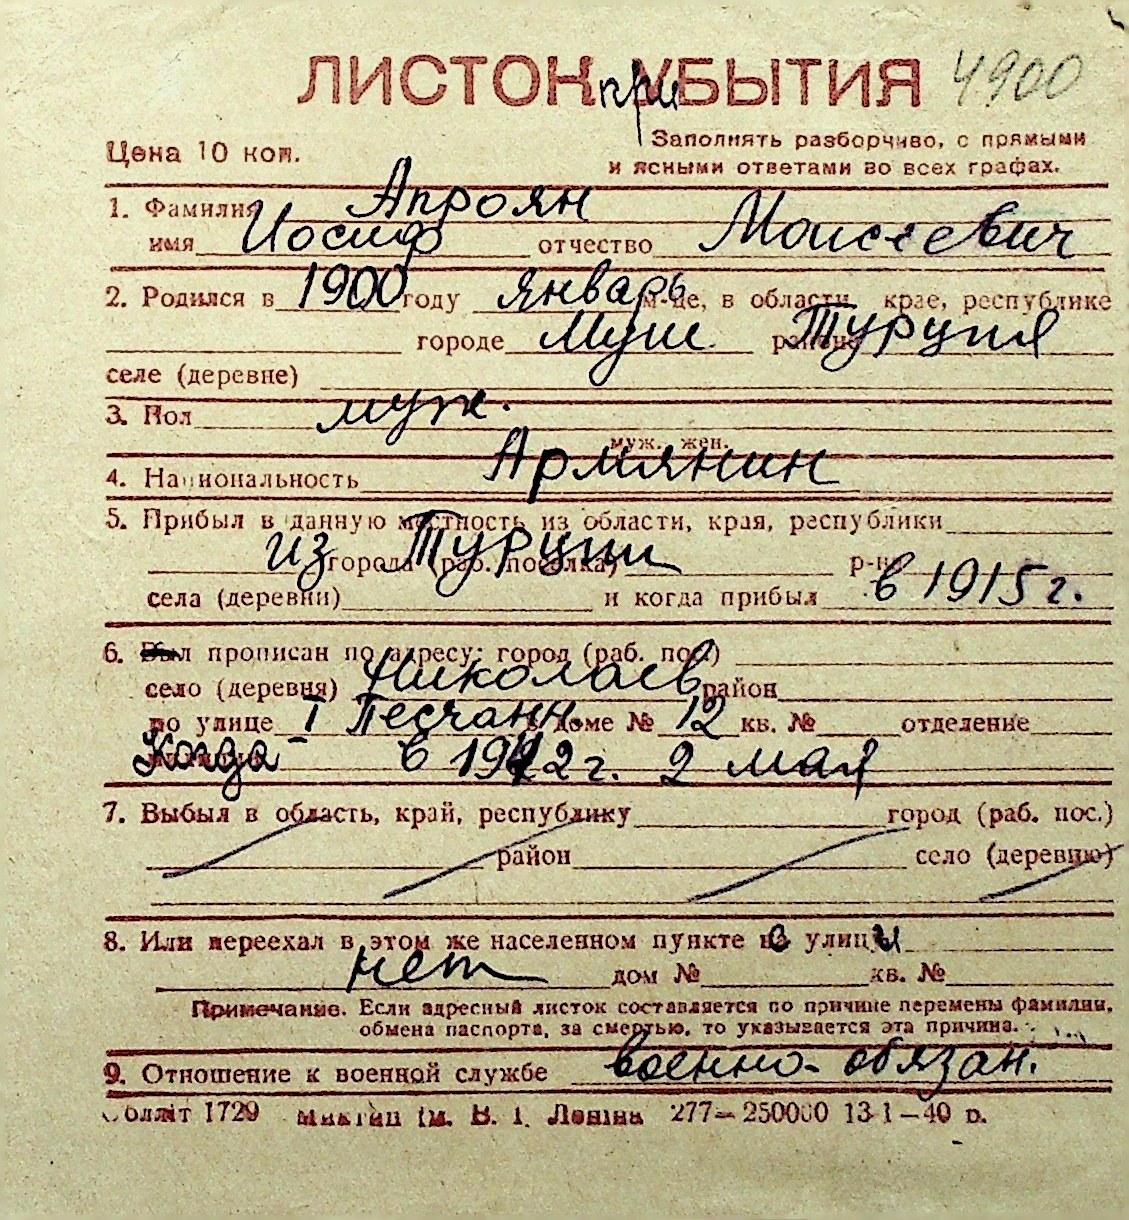 ЛИСТОК прибытия 4900
Цена 10 коп.
Заполнять разборчиво, с прямыми
и ясными ответами во всех графах.
1. Фамилия Апроян
имя Иосиф отчество Моисеевич
2. Родился в 1900 году январь м-це, в области, крае, республике
городе Муш районе Турция
селе (деревне)
3. Пол муж.
муж. жен.
4. Национальность Армянин
5. Прибыл в данную местность из области, края, республики
из города (раб. поселка) Турции р-на
села (деревни) и когда прибыл в 1915 г.
6. Был прописан по адресу: город (раб. пос.)
село (деревня) Николаев район
по улице I Песчанн. доме № 12 кв. № отделение
Когда в 1942 г. 2 мая
7. Выбыл в область, край, республику город (раб. пос.)
район село (деревню)
8. Или переехал в этом же населенном пункте с улицы
нет дом № кв. №
Примечание. Если адресный листок составляется по причине перемены фамилии,
обмена паспорта, за смертью, то указывается эта причина.
9. Отношение к военной службе военно-обязан.
Обллит 1729 ім. В. І. Леніна 277—250000 13-1—40 р.